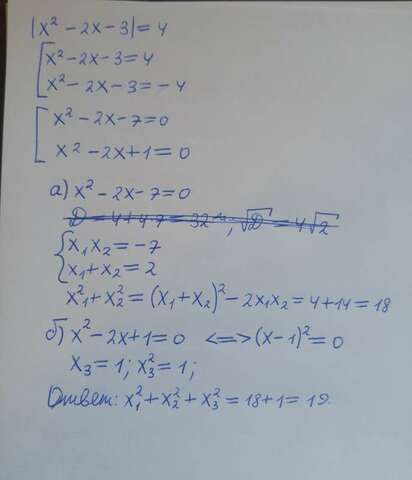 |x² - 2x - 3| = 4
x² - 2x - 3 = 4
x² - 2x - 3 = - 4
x² - 2x - 7 = 0
x² - 2x + 1 = 0
а) x² - 2x - 7 = 0
x₁ x₂ = - 7
x₁ + x₂ = 2
x₁² + x₂² = (x₁ + x₂)² - 2x₁x₂ = 4 + 14 = 18
б) x² - 2x + 1 = 0 <=> (x - 1)² = 0
x₃ = 1; x₃² = 1;
Ответ: x₁² + x₂² + x₃² = 18 + 1 = 19.